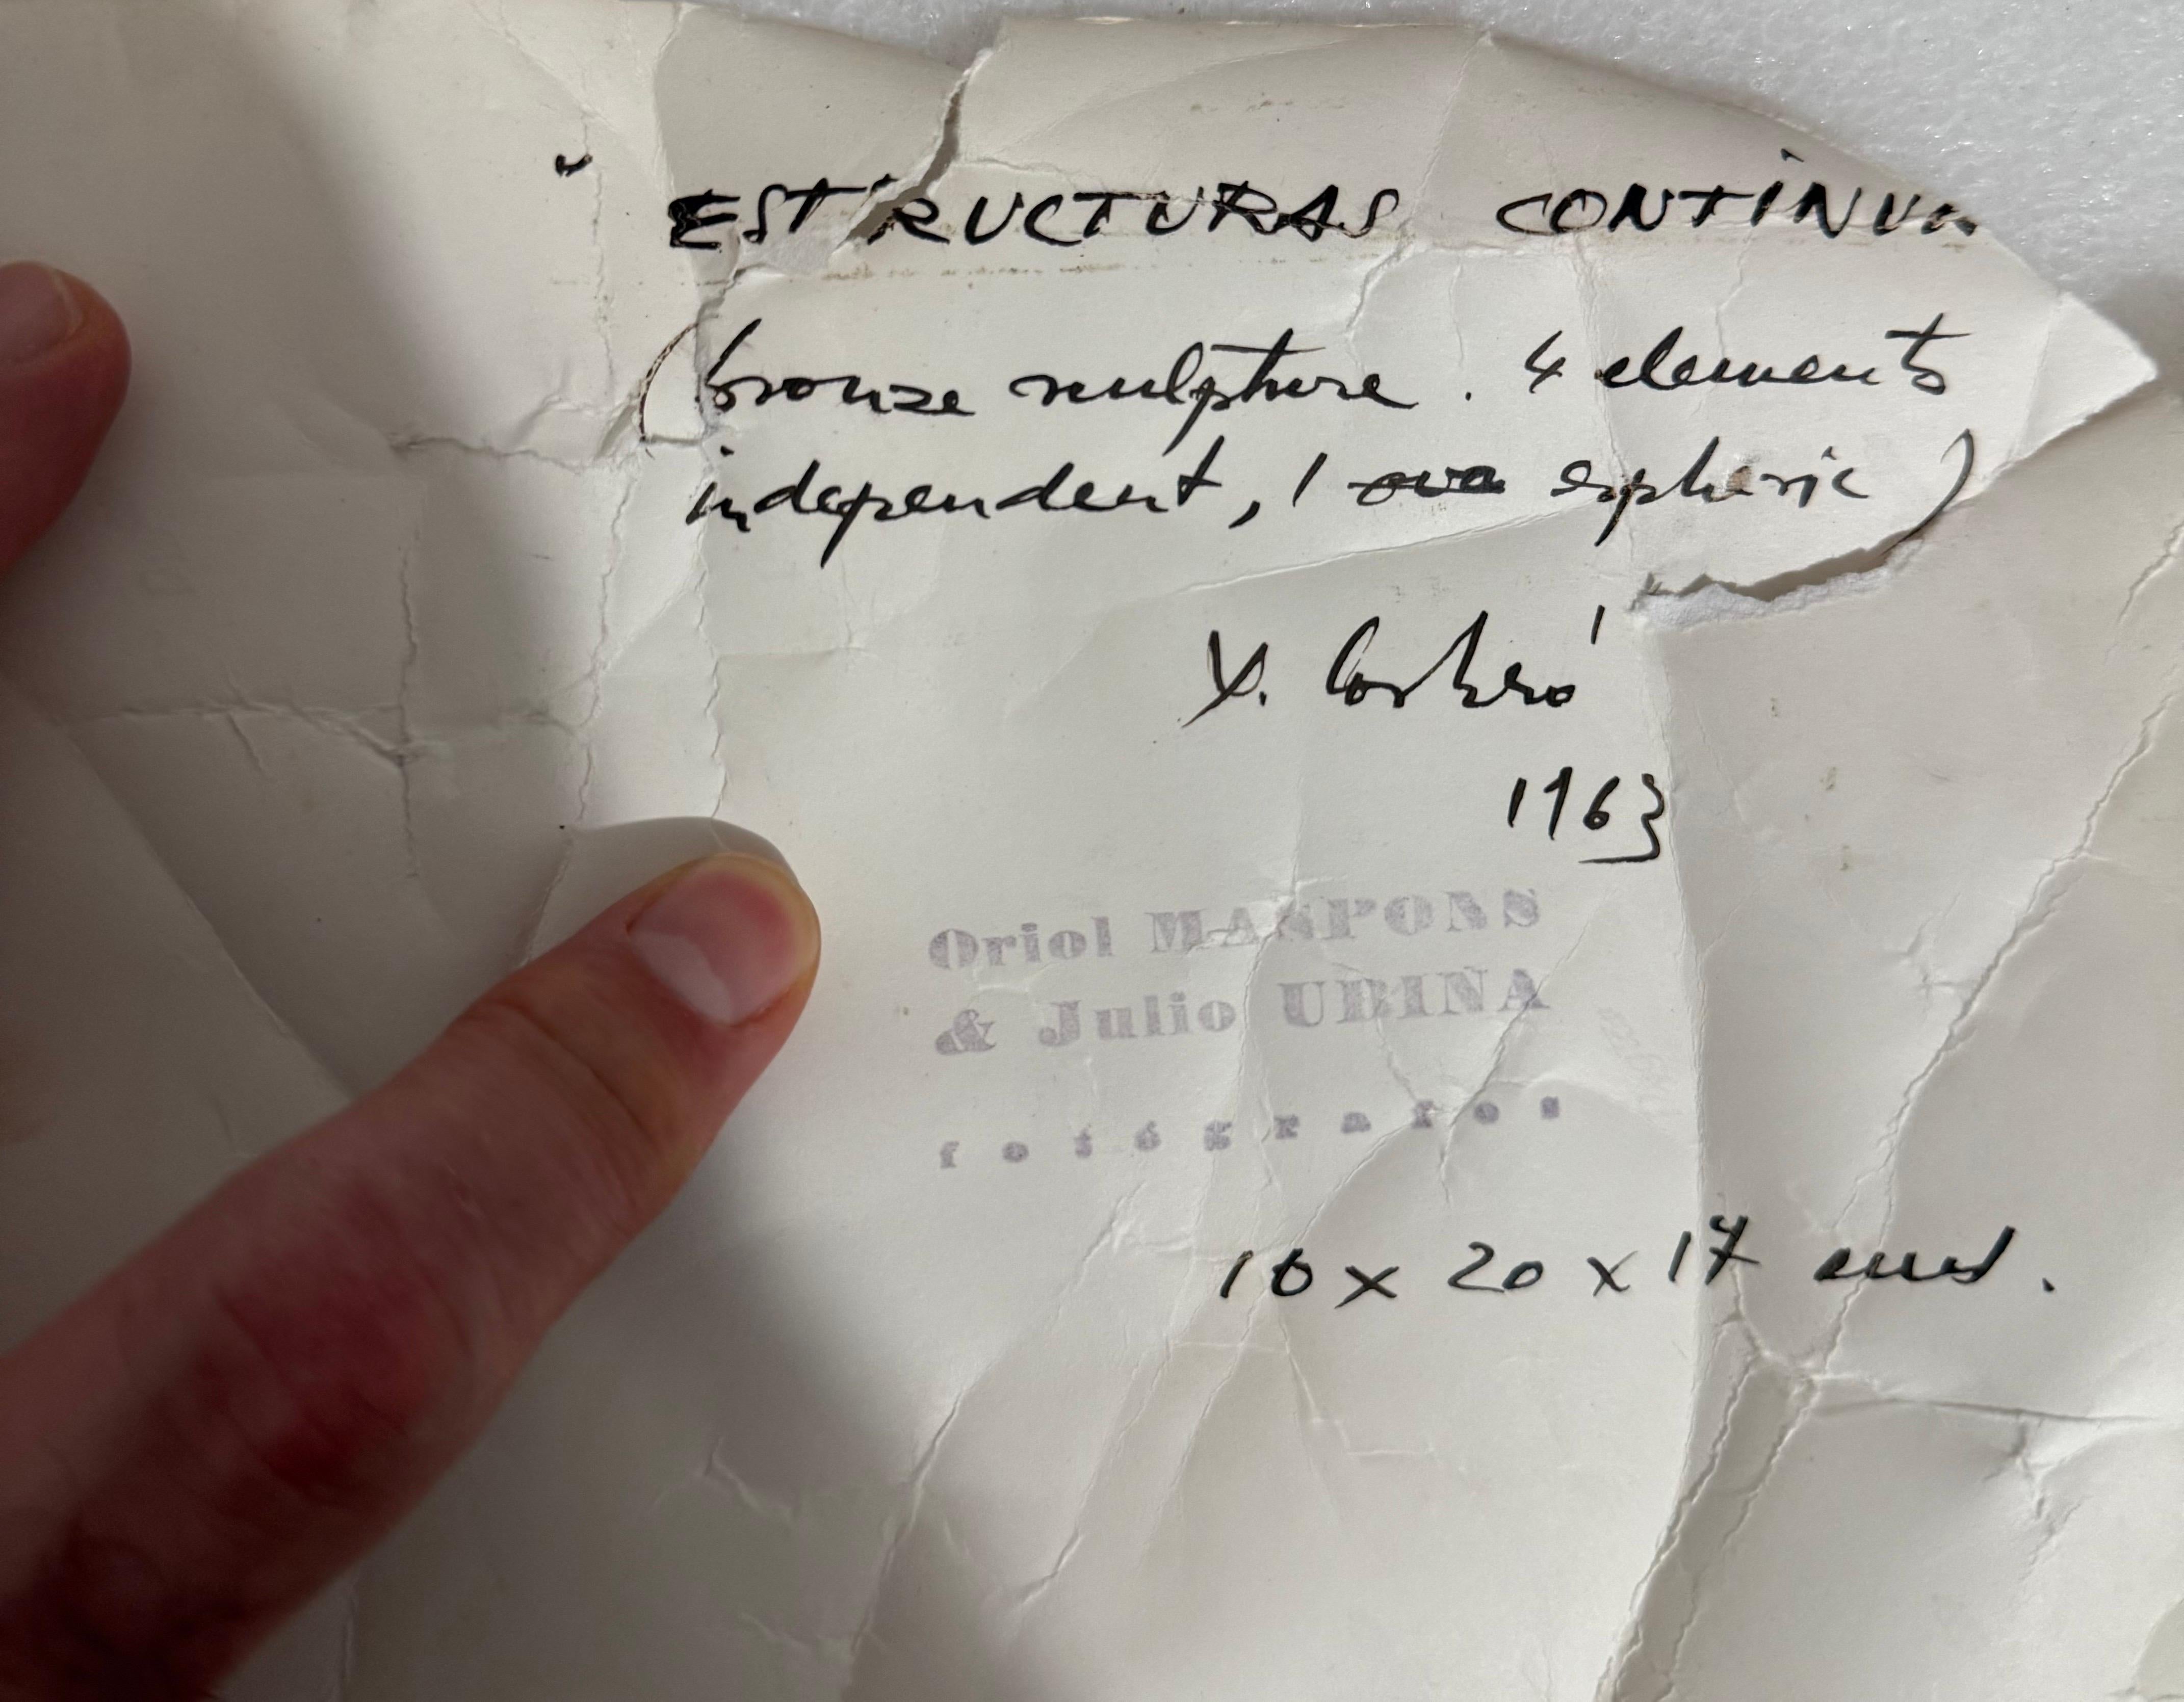 " ESTRUCTURAS CONTINUA
(bronze sculpture. 4 elements
independent, 1 ova espheric)
X. Corberó
1963
Oriol MASPONS
& Julio UBIÑA
fotógrafos
16 x 20 x 17